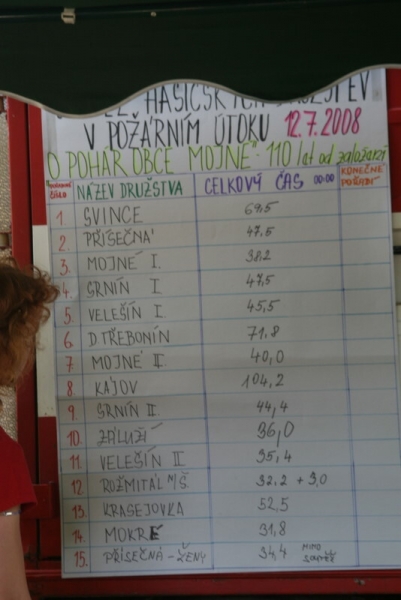 HASIČSKÝCH
V POŽÁRNÍM ÚTOKU 12.7.2008
O POHÁR OBCE MOJNÉ - 110 let od založení
ČÍSLO NÁZEV DRUŽSTVA CELKOVÝ ČAS 00:00 KONEČNÉ POŘADÍ
1. SVINCE 69,5
2. PŘÍSEČNÁ 47,5
3. MOJNÉ I. 38,2
4. SRNÍN I 47,5
5. VELEŠÍN I 45,5
6. D TŘEBONÍN 71,8
7. MOJNÉ II. 40,0
8. KÁJOV 104,2
9. SRNÍN II. 44,4
10. ZÁLUŽÍ 36,0
11. VELEŠÍN II 35,4
12 ROŽMITÁL N/Š 32,2 + 3,0
13. KRASEJOVKA 52,5
14. MOKRÉ 31,8
15. PŘÍSEČNÁ - ŽENY 34,4 MIMO SOUTĚŽ